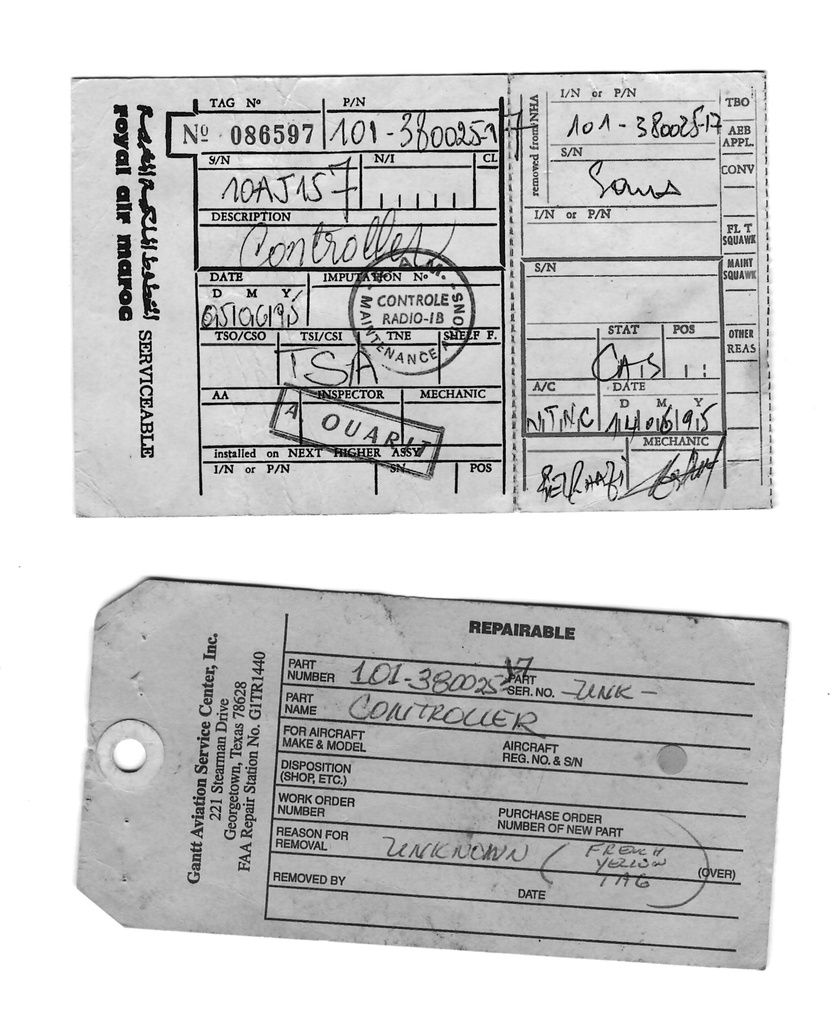 الخطوط الملكية المغربية
royal air maroc
SERVICEABLE
TAG Nº P/N
Nº 086597 101-380025-17
S/N N/I CL
10AJ157
DESCRIPTION
Controller
DATE IMPUTATION Nº
D M Y
05 06 95
R.A.M.
CONTROLE
RADIO-IB
MAINTENANCE AVIONS
TSO/CSO TSI/CSI TNE SHELF F.
AA INSPECTOR MECHANIC
A OUARIT
installed on NEXT HIGHER ASSY
I/N or P/N SN POS
removed from NHA
I/N or P/N
101-380025-17
S/N
Sans
I/N or P/N
S/N
STAT POS
A/C DATE
D M Y
NTNC 14 06 95
MECHANIC
TBO
AEB
APPL.
CONV
FL T
SQUAWK
MAINT
SQUAWK
OTHER
REAS
Gantt Aviation Service Center, Inc.
221 Stearman Drive
Georgetown, Texas 78628
FAA Repair Station No. G1TR1440
REPAIRABLE
PART
NUMBER 101-380025-17 PART
SER. NO. -UNK-
PART
NAME CONTROLLER
FOR AIRCRAFT
MAKE & MODEL
AIRCRAFT
REG. NO. & S/N
DISPOSITION
(SHOP, ETC.)
WORK ORDER
NUMBER
PURCHASE ORDER
NUMBER OF NEW PART
REASON FOR
REMOVAL UNKNOWN (FRENCH
YELLOW
TAG)
(OVER)
REMOVED BY
DATE